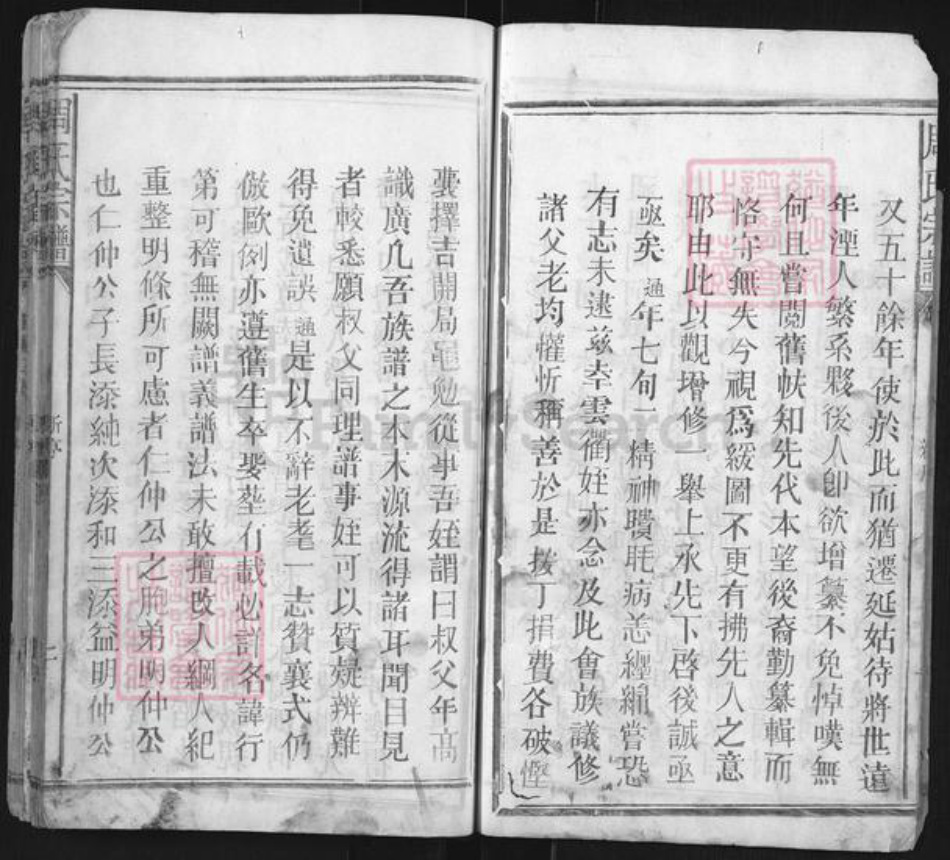 又五十餘年使於此而猶遷延姑待將世遠
年湮人繁系夥後人卽欲增纂不免悼嘆無
何且嘗閱舊帙知先代本望後裔勤纂輯而
恪守無失今視爲緩圖不更有拂先人之意
耶由此以觀增修一舉上承先下啓後誠亟
亟矣通年七旬一精神瞶眊病恙纏綿嘗恐
有志未逮茲幸雲衢姪亦念及此會族議修
諸父老均懽忻稱善於是拨丁捐費各破慳
囊擇吉開局黽勉從事吾姪謂曰叔父年高
識廣凡吾族譜之本木源流得諸耳聞目見
者較悉願叔父同理譜事姪可以質疑辨難
得免遺誤通是以不辭老耄一志贊襄式仍
倣歐例亦遵舊生卒娶塟有載必詳名諱行
第可稽無闕譜義譜法未敢擅改人綱人紀
重整明條所可慮者仁仲公之胞弟明仲公
也仁仲公子長添純次添和三添益明仲公
周氏宗譜